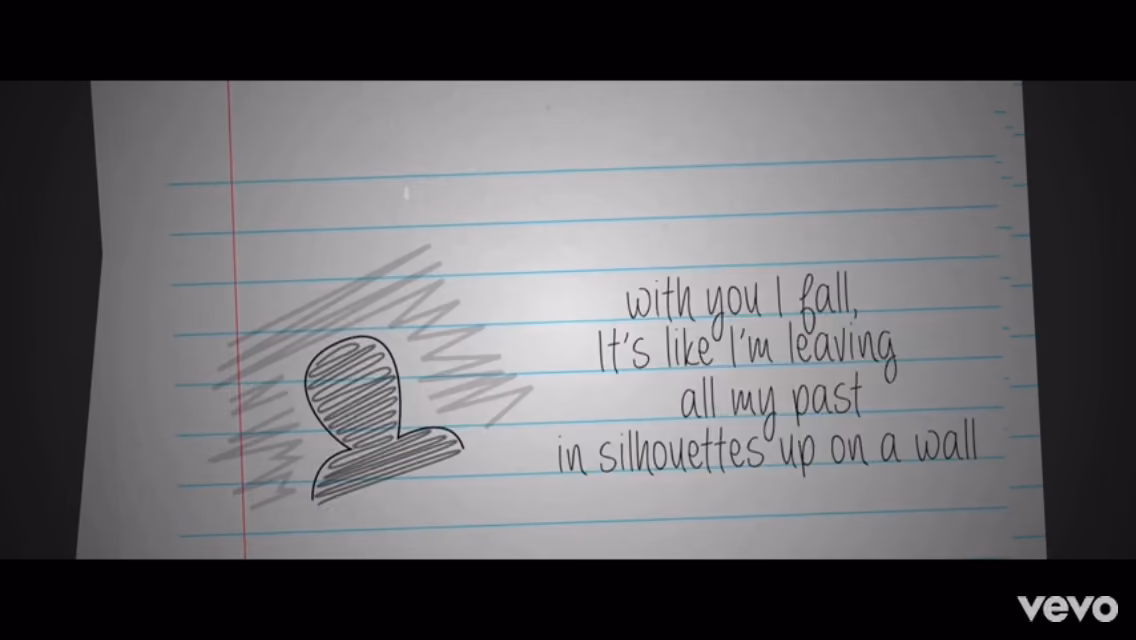 with you I fall,
It's like I'm leaving
all my past
in silhouettes up on a wall
vevo